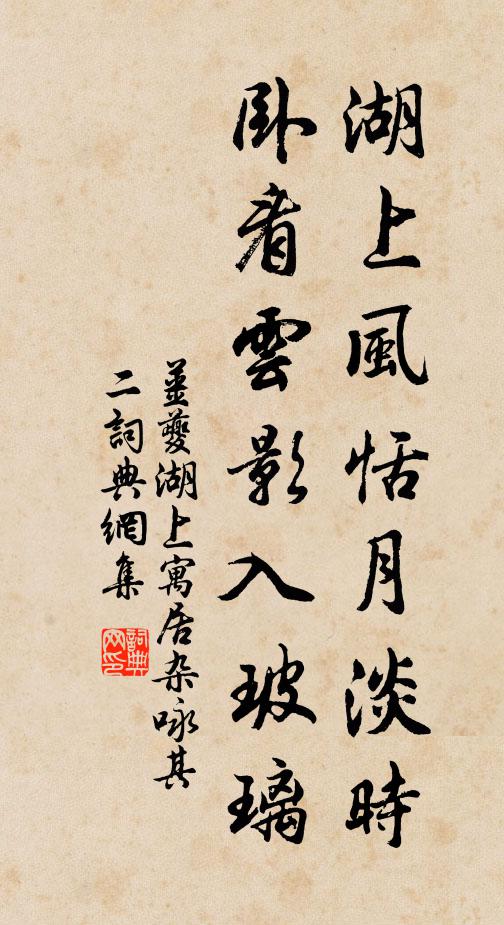 湖上風恬月淡時
卧看雲影入玻璃
姜夔湖上寓居杂咏其
二詞典網集
詞典網印